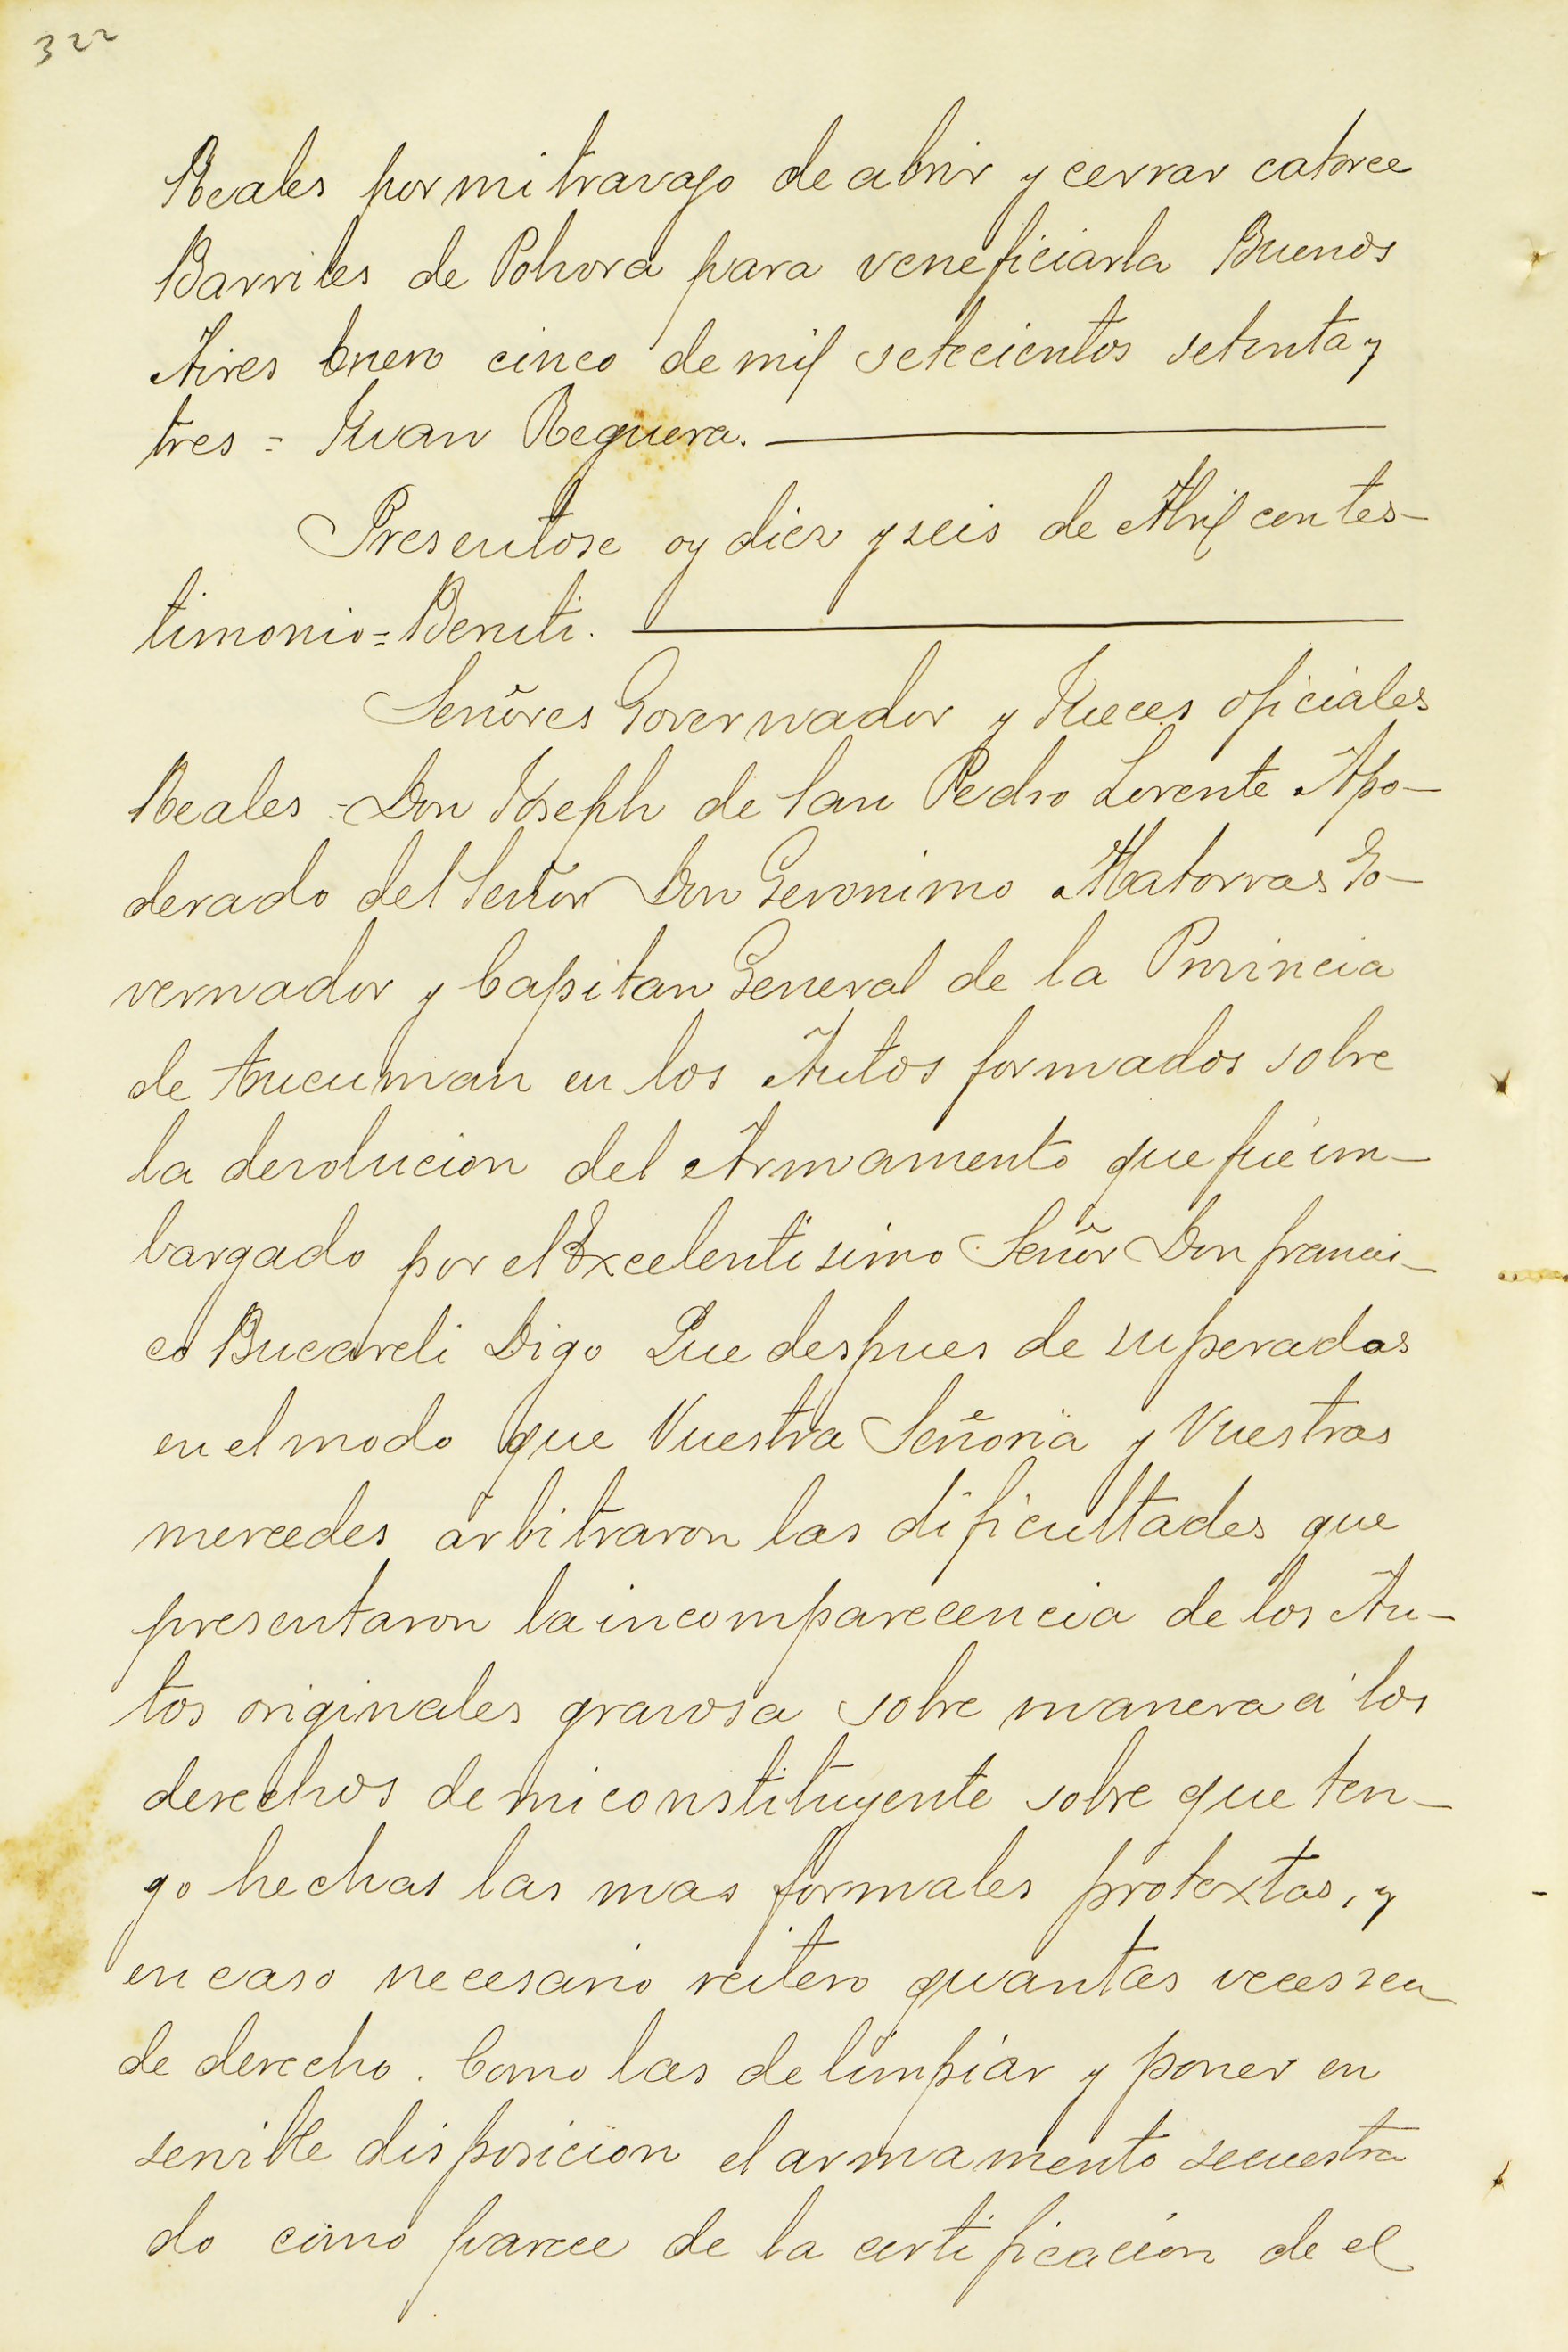 322
Reales por mi travajo de abrir y cerrar catorce
Barriles de Polvora para veneficiarla Buenos
Aires Enero cinco de mil setecientos setenta y
tres = Juan Reguera.
Presentose oy diez y seis de Abril con tes-
timonio = Beniti.
Señores Governador y Jueces oficiales
Reales = Don Joseph de San Pedro Lorente Apo-
derado del Señor Don Geronimo Matorras Go-
vernador y Capitan General de la Provincia
de Tucuman en los Autos formados sobre
la devolucion del Armamento que fué em-
bargado por el Excelentisimo Señor Don francis-
co Bucareli Digo Que despues de superadas
en el modo que Vuestra Señoria y Vuestras
mercedes arbitraron las dificultades que
presentaron la incomparecencia de los Au-
tos originales gravosa sobre manera á los
derechos de mi constituyente sobre que ten-
go hechas las mas formales protextas, y
en caso necesario reitero quantas veces sea
de derecho. Como las de limpiar y poner en
servible disposicion el armamento secuestra
do como parece de la certificacion de el